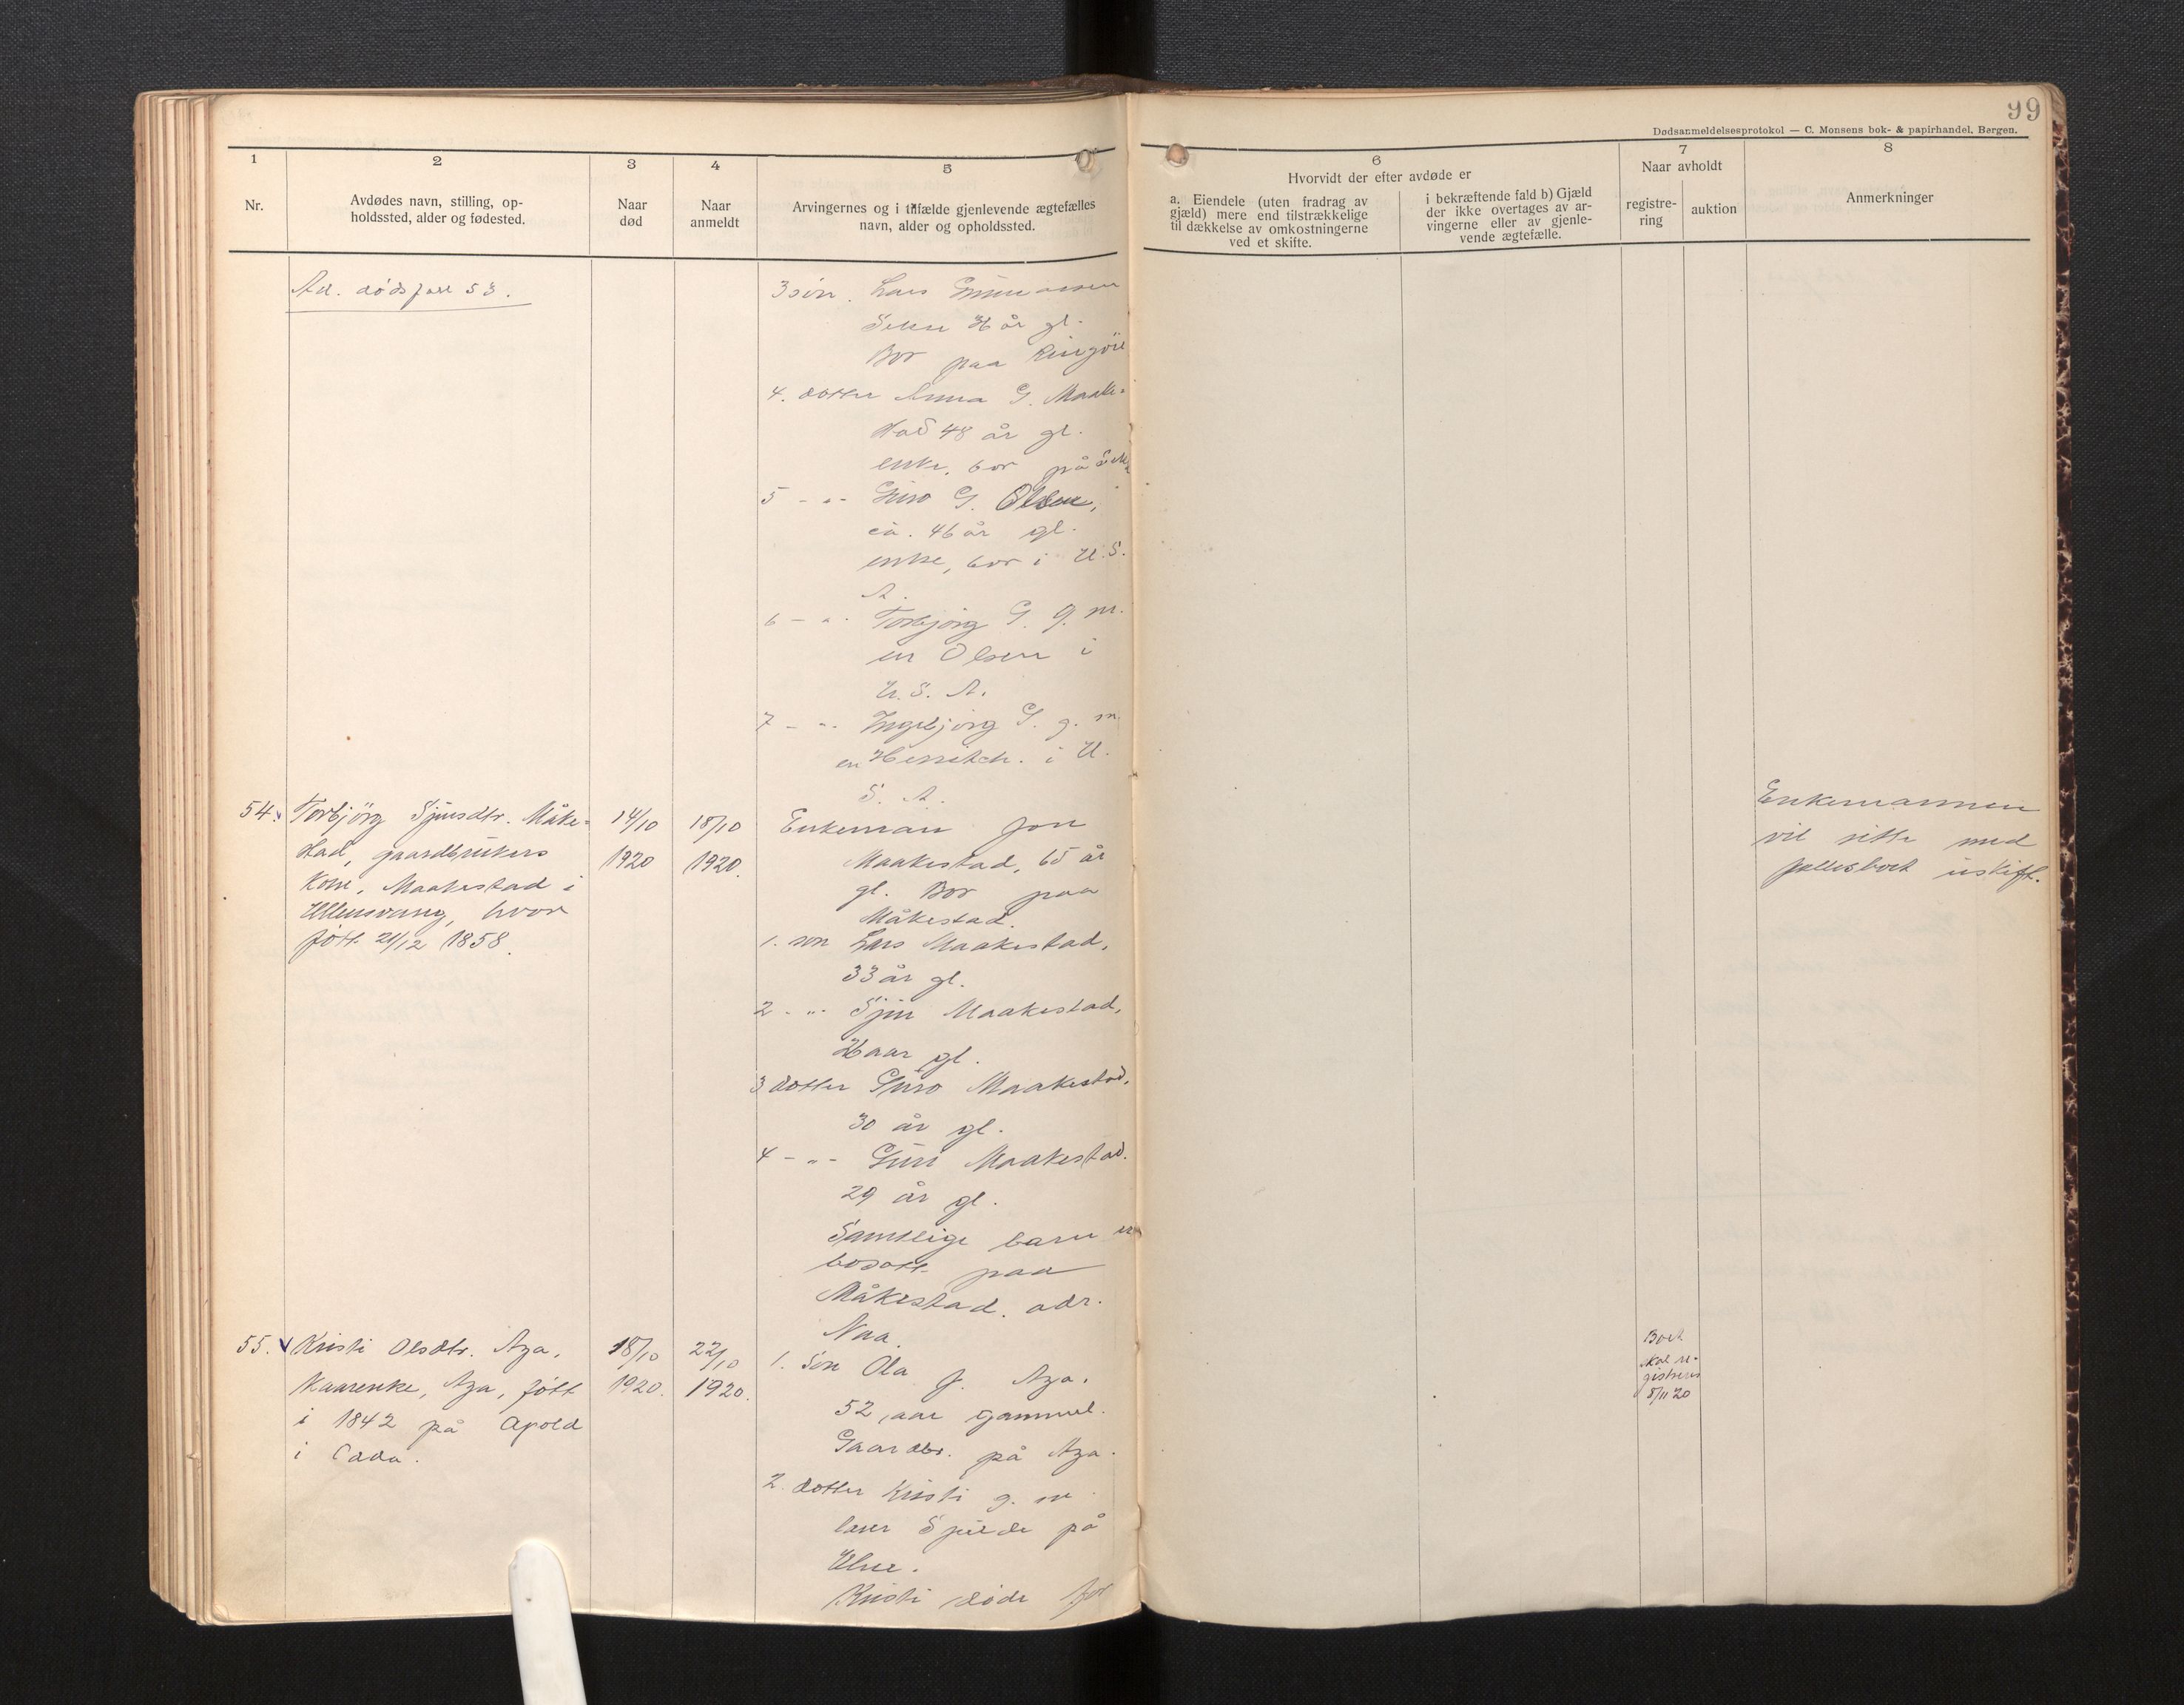 99
Dødsanmeldelsesprotokol — C. Monsens bok- & papirhandel, Bergen.
1
Nr.
2
Avdødes navn, stilling, op-
holdssted, alder og fødested.
3
Naar
død
4
Naar
anmeldt
5
Arvingernes og i tilfælde gjenlevende ægtefælles
navn, alder og opholdssted.
6
Hvorvidt der efter avdøde er
a. Eiendele (uten fradrag av
gjæld) mere end tilstrækkelige
til dækkelse av omkostningerne
ved et skifte.
i bekræftende fald b) Gjæld
der ikke overtages av ar-
vingerne eller av gjenle-
vende ægtefælle.
7
Naar avholdt
registre-
ring
auktion
8
Anmerkninger
Ad. dødsfall 53.
3 sön. Lars
36 år gl.
Bor paa
4. dotter Anna G. Maake-
stad 48 år gl.
enke, bor på
5 - " - Guro G. Olsen,
ca. 46 år gl.
enke, bor i U. S.
A.
6 - " - Torbjörg G. g. m.
en Olsen i
U. S. A.
7 - " - Ingebjörg G. g. m.
en i U.
S. A.
54.
Torbjörg Sjursdtr. Måke-
stad, gaardbrukers
kone, Maakestad i
Ullensvang, hvor
född 21/12 1858.
14/10
1920
18/10
1920.
Enkeman Jon
Maakestad, 65 år
gl. Bor paa
Måkestad.
1. son Lars Maakestad,
33 år gl.
2 - " - Sjur Maakestad,
26 aar gl.
3 dotter Guro Maakestad,
30 år gl.
4 - " - Guri Maakestad.
29 år gl.
Samtlige barn er
bosatt paa
Måkestad. adr.
Naa.
Enkemannen
vil sitte med
fellesboet uskift.
55.
Kristi Olsdtr. Aga,
Kaarenke, Aga, född
i 1842 på Apold
i Odda.
18/10
1920.
22/10
1920.
1. Sön Ola J. Aga.
52 aar gammel.
Gaardbr. på Aga.
2. dotter Kristi g. m.
Lars Spilde på
Elne.
Kristi döde for
Boet
skal re-
gistreres
5/11 20